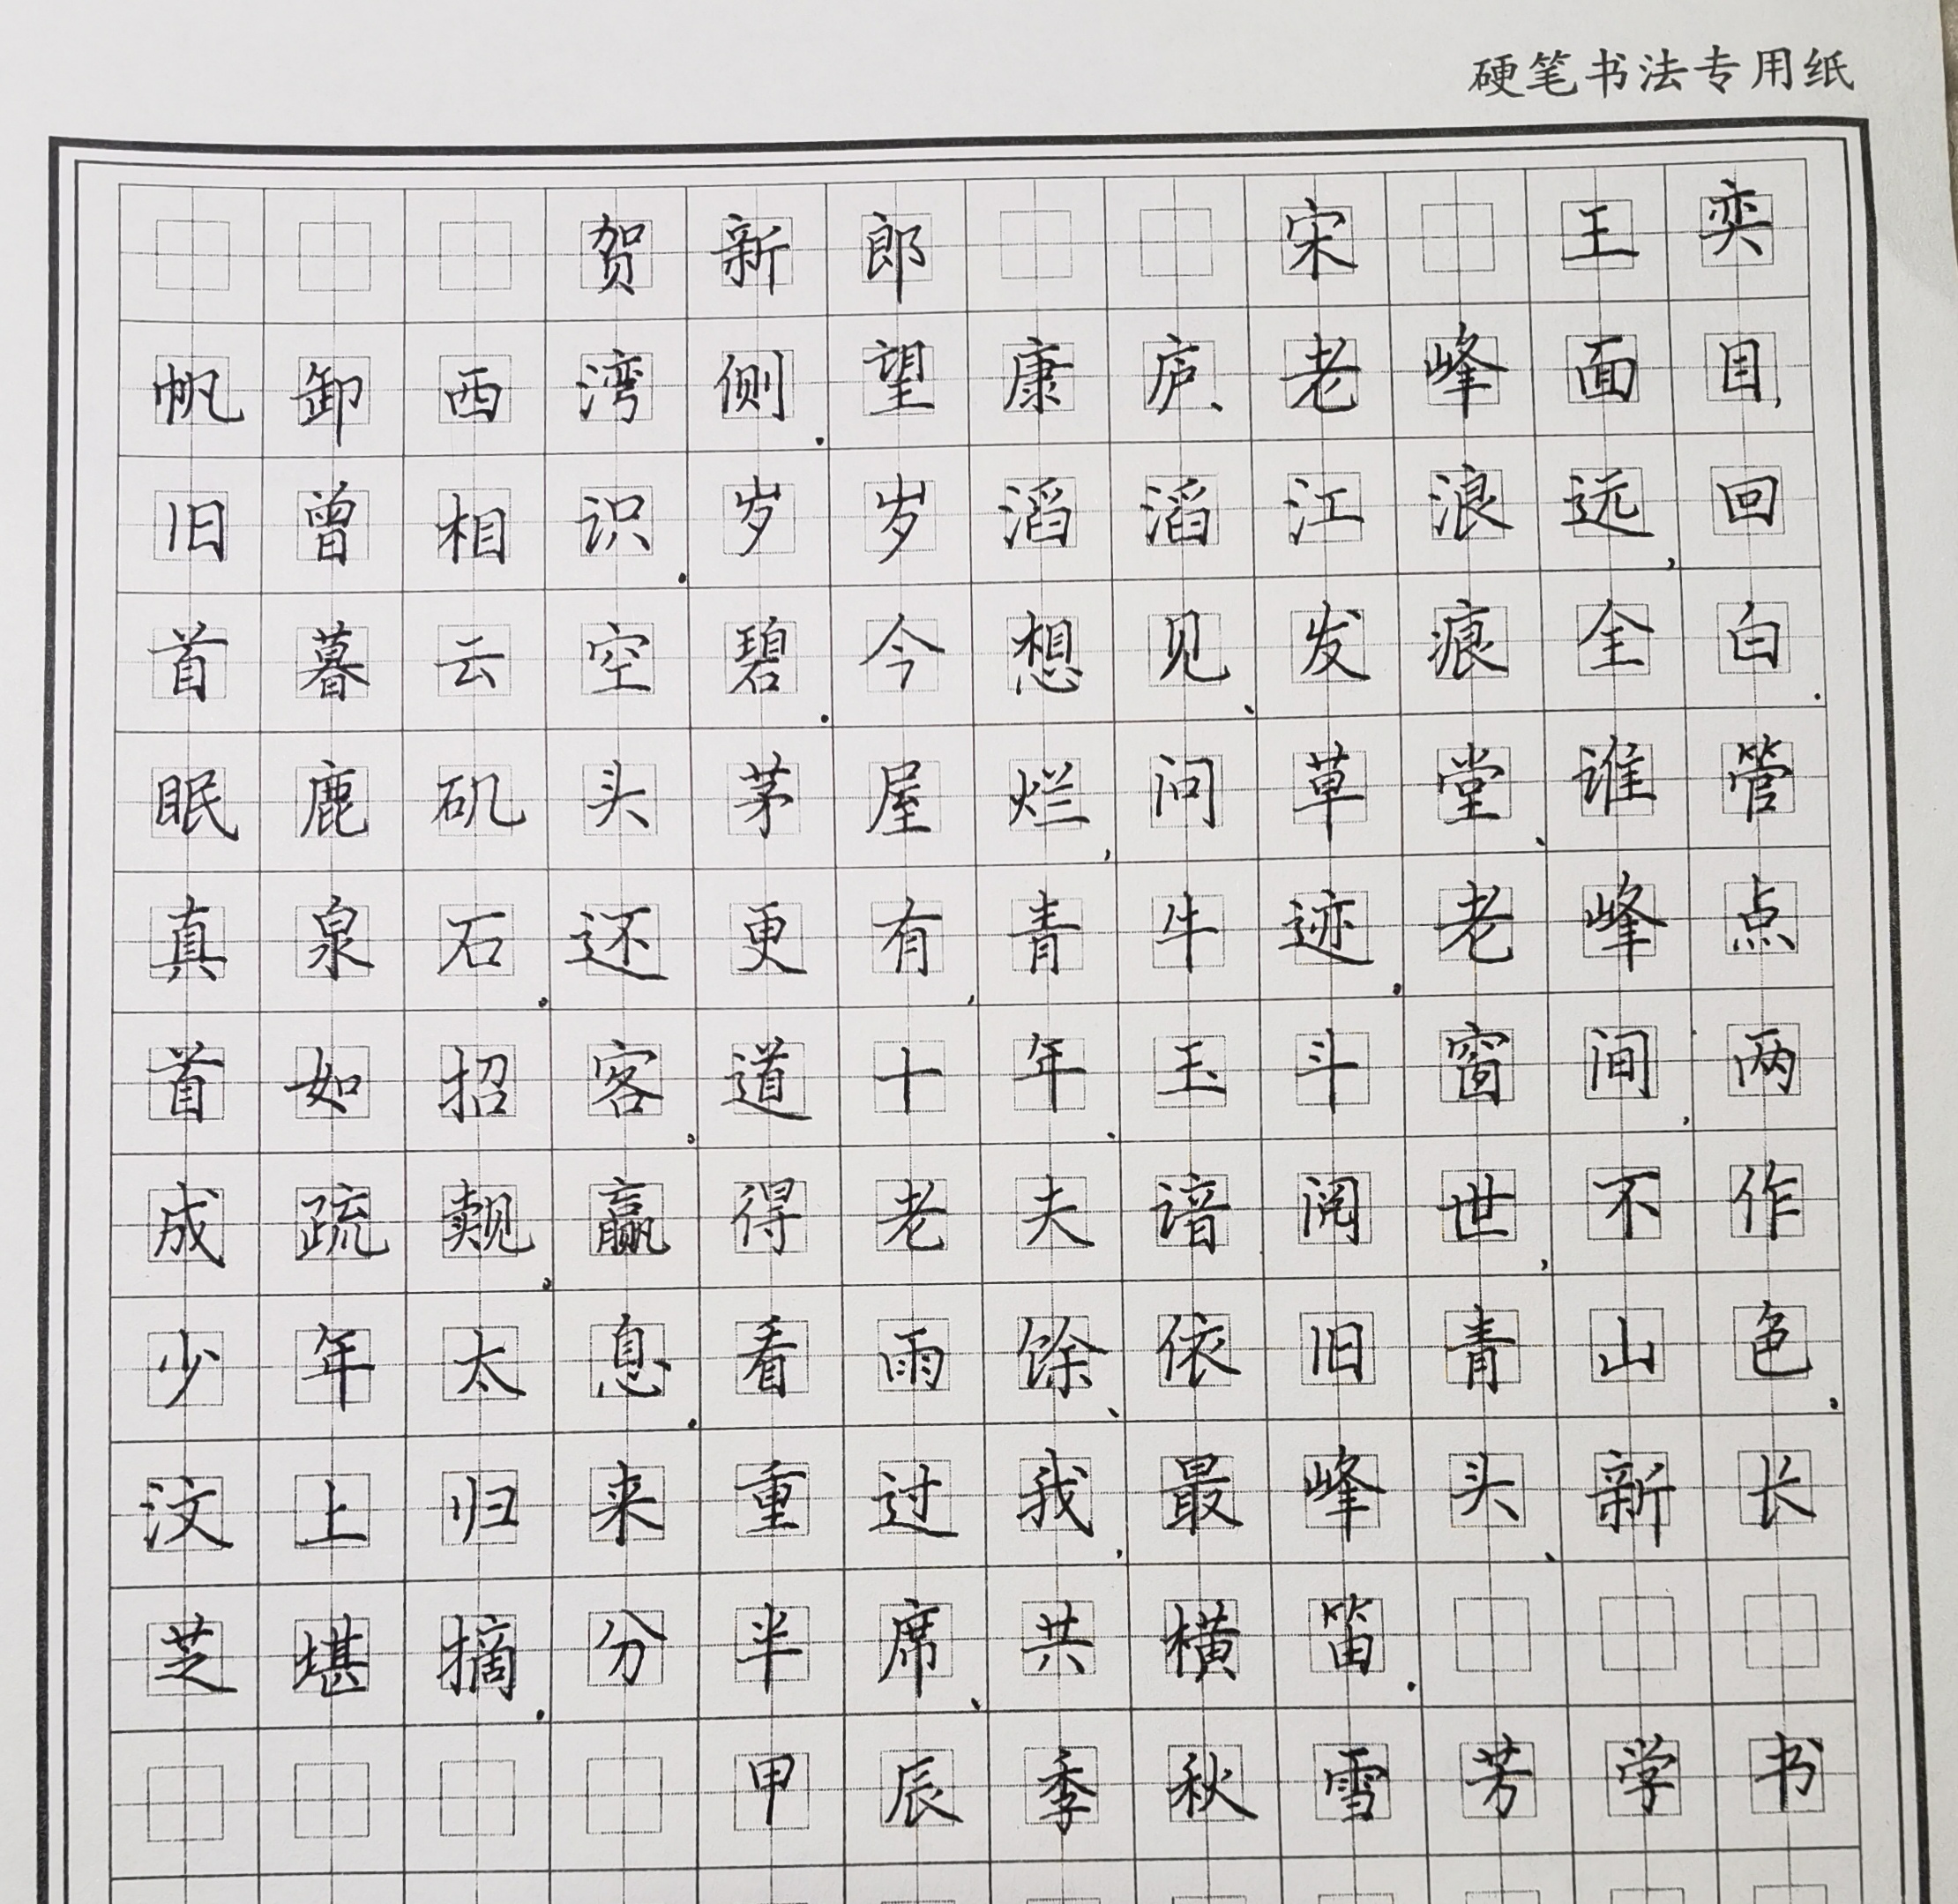 硬笔书法专用纸
贺新郎 宋 王奕
帆卸西湾侧.望康庐、老峰面目,
旧曾相识.岁岁滔滔江浪远,回
首暮云空碧.今想见、发痕全白.
眠鹿矶头茅屋烂,问草堂、谁管
真泉石.还更有,青牛迹.老峰点
首如招客.道十年.玉斗窗间,两
成疏觌.赢得老夫谙阅世,不作
少年太息.看雨馀、依旧青山色.
汶上归来重过我,最峰头、新长
芝堪摘.分半席、共横笛.
甲辰季秋雪芳学书